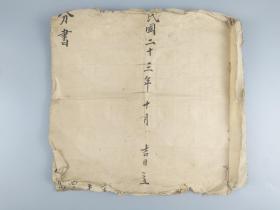 民國二十三年十月 吉日立
分書